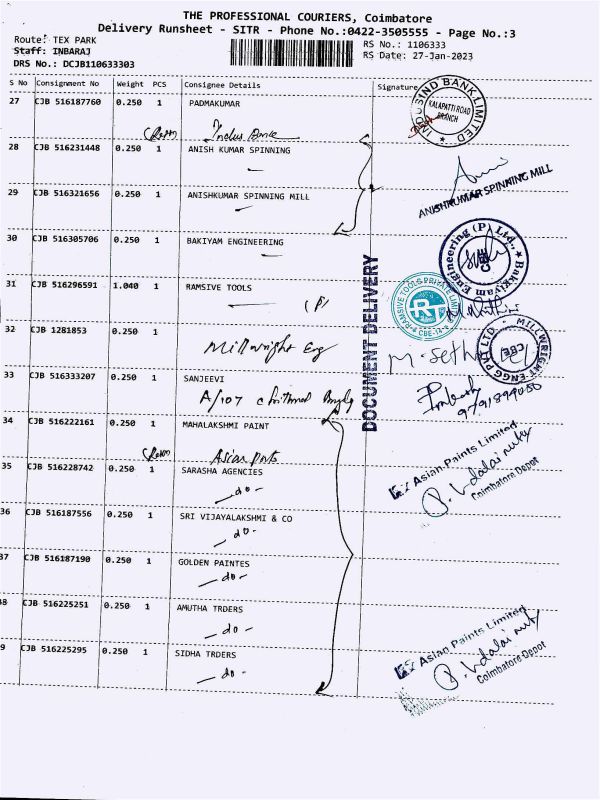 THE PROFESSIONAL COURIERS, Coimbatore
Delivery Runsheet - SITR - Phone No.:0422-3505555 - Page No.:3
Route: TEX PARK
Staff: INBARAJ
DRS No.: DCJB110633303
RS No.: 1106333
RS Date: 27-Jan-2023
S No Consignment No Weight PCS Consignee Details Signature
27 CJB 516187760 0.250 1 PADMAKUMAR
INDUSIND BANK LIMITED
KALAPATTI ROAD
BRANCH
28 CJB 516231448 0.250 1 ANISH KUMAR SPINNING
29 CJB 516321656 0.250 1 ANISHKUMAR SPINNING MILL
ANISHKUMAR SPINNING MILL
30 CJB 516305706 0.250 1 BAKIYAM ENGINEERING
Bakkiyam Engineering (P) Ltd.,
DOCUMENT DELIVERY
31 CJB 516296591 1.040 1 RAMSIVE TOOLS
(P)
RAMSIVE TOOLS PRIVATE LIMITED
RT
CBE-14
32 CJB 1281853 0.250 1
Millwright Eng
M. Sethu
MILLWRIGHT ENGG PVT LTD
CBE
33 CJB 516333207 0.250 1 SANJEEVI
A/107
34 CJB 516222161 0.250 1 MAHALAKSHMI PAINT
Asian Paints
Asian Paints Limited
Coimbatore Depot
35 CJB 516228742 0.250 1 SARASHA AGENCIES
- do -
36 CJB 516187556 0.250 1 SRI VIJAYALAKSHMI & CO
- do -
37 CJB 516187190 0.250 1 GOLDEN PAINTES
- do -
38 CJB 516225251 0.250 1 AMUTHA TRDERS
- do -
9 CJB 516225295 0.250 1 SIDHA TRDERS
- do -
Asian Paints Limited
Coimbatore Depot